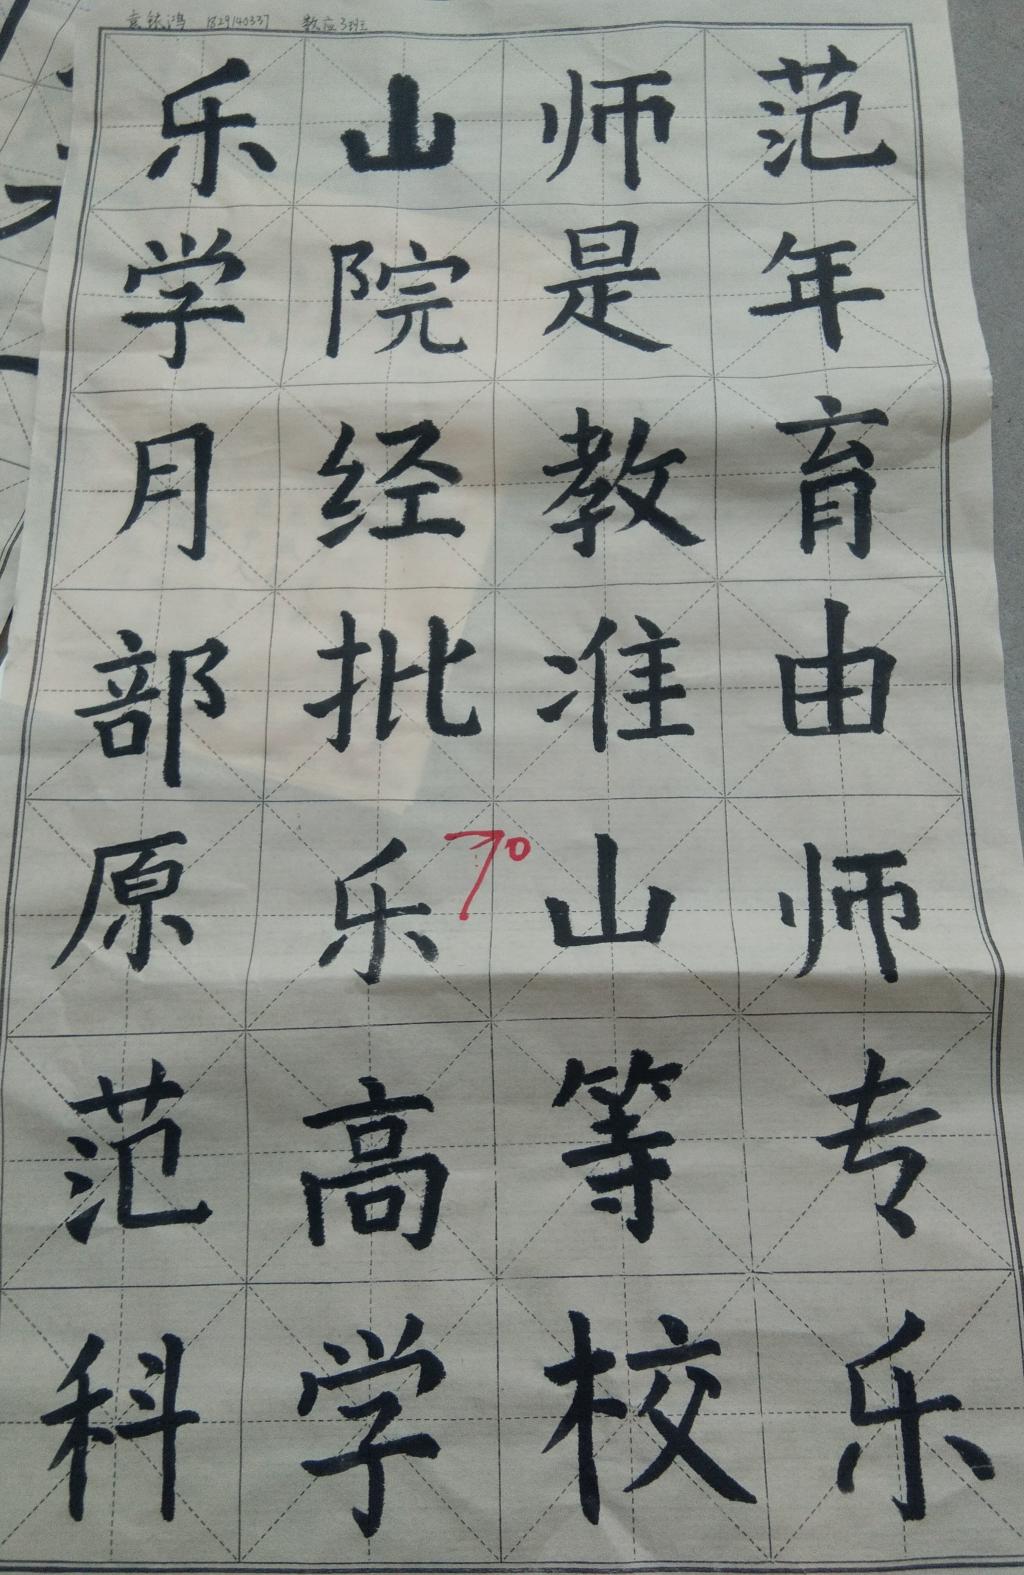 袁铱鸿 1829140337 数应3班
乐山师范
学院是年
月经教育
部批准由
原乐山师
范高等专
科学校乐
70